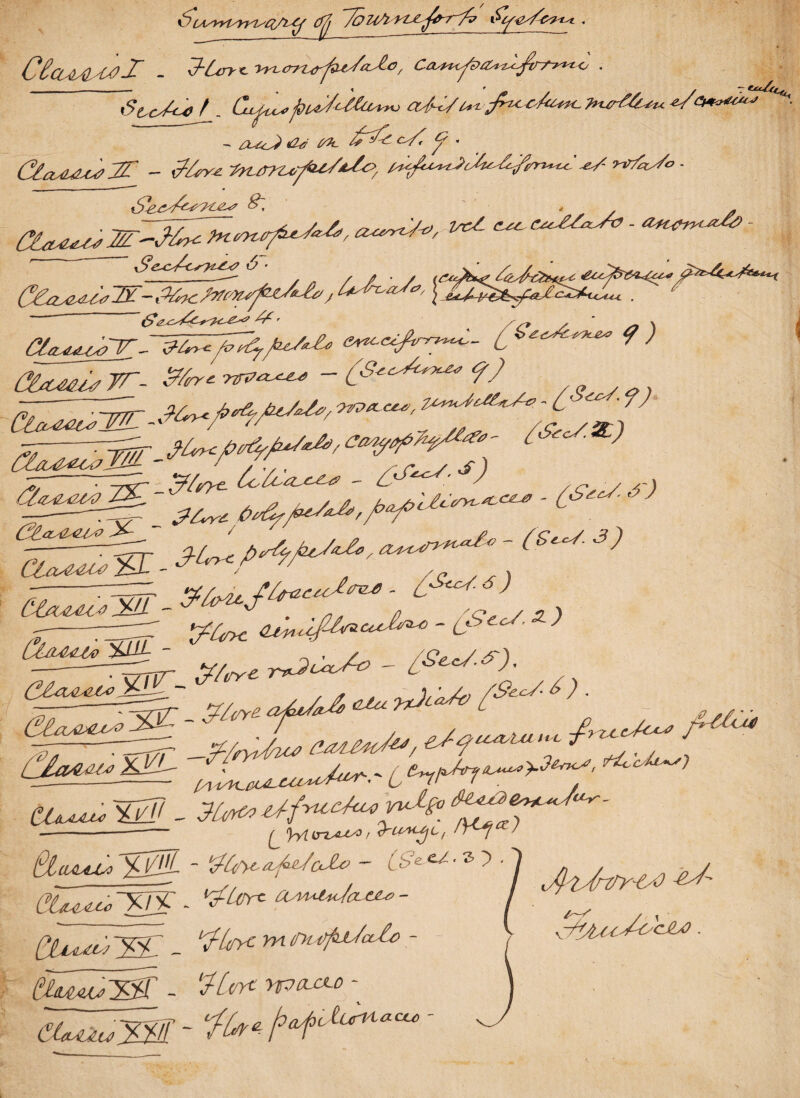 Summary of Tournefort's System.
Classis I - Flore monopetalo, campaniformi.
Sectio 1. Cujus pistillum abit in fructum mollem et crassiusculum.
- and so on to Sect. 9.
Classis II - Flore monopetalo, infundibuliformi et rotato.
Sectiones 8.
Classis III - Flore monopetalo, aurito, vel cucullato - anomalo -
Sectiones 5.
Classis IV - Flore monopetalo, labiato, { cujus labium superius galeatum
est vel falcatum.
Sectiones 4.
Classis V - Flore polypetalo cruciformi - (Sectiones 9)
Classis VI - Flore rosaceo - (Sectiones 9)
Classis VII - Flore polypetalo, rosaceo, umbellato - (Sect. 9)
Classis VIII - Flore polypetalo, caryophyllæo - (Sect. 2)
Classis IX - Flore liliaceo - (Sect. 5)
Classis X - Flore polypetalo, papilionaceo - (Sect. 5)
Classis XI - Flore polypetalo, anomalo - (Sect. 3)
Classis XII - Flore flosculoso - (Sect. 5)
Classis XIII - Flore semiflosculoso - (Sect. 2)
Classis XIV - Flore radiato - (Sect. 5).
Classis XV - Flore apetalo seu radiato (Sect. 6).
Classis XVI - Floribus carentes, et quarum fructus foliis
innascuntur. - (Cryptogamus Ferns, + Lichens)
Classis XVII - Flores et fructus vulgo desiderantur -
(Mosses, Fungi, Algæ)
Classis XVIII - Flore apetalo - (Sect. 3).
Classis XIX - Flore amentaceo -
Classis XX - Flore monopetalo -
Classis XXI - Flore rosaceo -
Classis XXII - Flore papilionaceo -
Arbores et
Frutices.